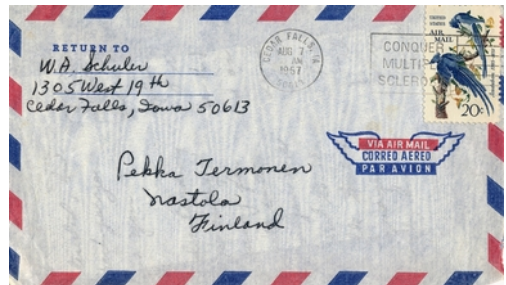 RETURN TO
W.A. Schuler
1305 West 19th
Cedar Falls, Iowa 50613
CEDAR FALLS, IA
AUG 7
AM
1967
CONQUER
MULTIPLE
SCLEROSIS
UNITED
STATES
AIR
MAIL
20c
VIA AIR MAIL
CORREO AEREO
PAR AVION
Pekka Termonen
Nastola
Finland